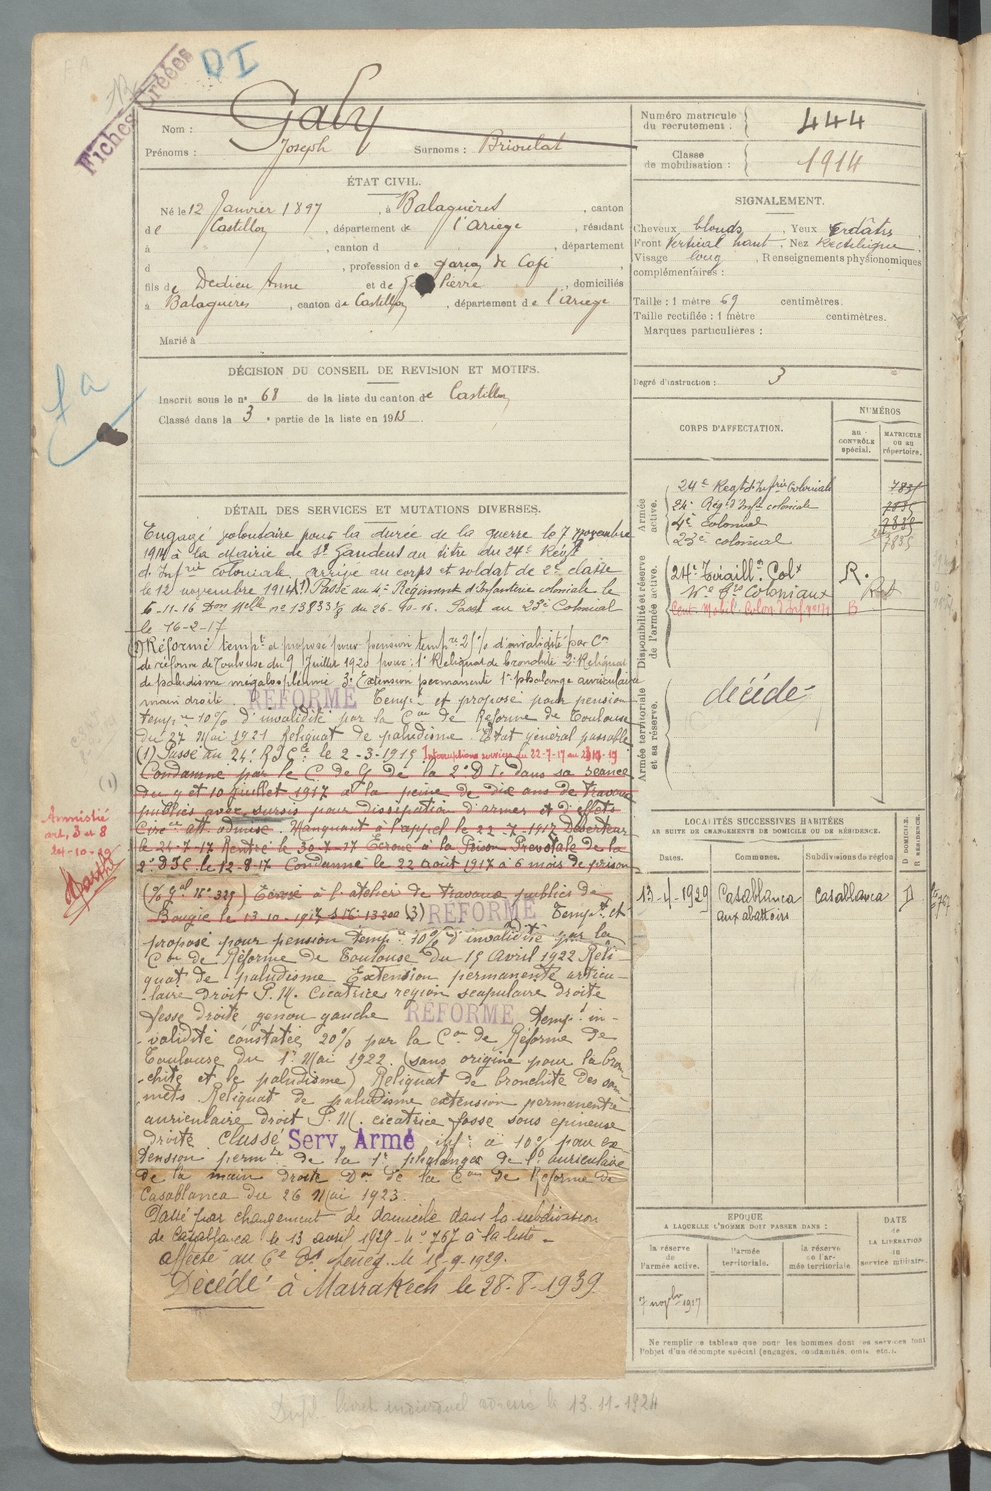 Fiches Créées
DI
Nom : Galy
Prénoms : Joseph Surnoms : Brioulat
Numéro matricule du recrutement : 444
Classe de mobilisation : 1914
ÉTAT CIVIL.
Né le 12 Janvier 1897, à Balaguères, canton
de Castillon, département de l'Ariège, résidant
à , canton d , département
d , profession de garçon de Café
fils de Dedieu Anne et de Pierre, domiciliés
à Balaguères, canton de Castillon, département de l'Ariège
Marié à
SIGNALEMENT.
Cheveux blonds, Yeux verdâtres
Front Vertical haut. Nez Rectiligne.
Visage long, Renseignements physionomiques
complémentaires :
Taille : 1 mètre 69 centimètres.
Taille rectifiée : 1 mètre centimètres.
Marques particulières :
Degré d'instruction : 3
DÉCISION DU CONSEIL DE REVISION ET MOTIFS.
Inscrit sous le n° 68 de la liste du canton de Castillon
Classé dans la 3e partie de la liste en 1915.
fa
DÉTAIL DES SERVICES ET MUTATIONS DIVERSES.
Engagé volontaire pour la durée de la guerre le 7 novembre
1914 à la Mairie de St Gaudens au titre du 24e Régt
d'Infrie Coloniale, arrivé au corps et soldat de 2e classe
le 12 novembre 1914 (1) Passé au 4e Régiment d'Infanterie coloniale le
6-11-16 Don Melle no 13933 3/8 du 26-10-16. Passé au 23e Colonial
le 16-2-17
(2) Réformé tempre et proposé pour pension tempre 25% d'invalidité par Con
de réforme de Toulouse du 9 Juillet 1920 pour : 1° Reliquat de bronchite 2° Reliquat
de paludisme mégalosplénie 3° Extension permanente 1e phalange auriculaire
main droite. RÉFORMÉ Tempre et proposé pour pension
tempre 10% d'invalidité par la Con de Réforme de Toulouse
du 27 Mai 1921 Reliquat de paludisme. Etat général passable
(1) Passé au 24e R.I.Cle le 2-3-1915 Interruptions services du 22-7-17 au
Condamné par le C. de G. de la 2e D.I. dans sa séance
du 9 et 10 juillet 1917 à la peine de dix ans de travaux
publics avec sursis pour dissipation d'armes et d'effets
Circes att. admise. Manquant à l'appel le 22-7-1917 Déserteur
le 24-7-17 Rentré le 30-7-17 Ecroué à la Prison Prévôtale de la
2e D.I.C. le 12-8-17 Condamné le 22 août 1917 à 6 mois de prison
(1)
Amnistié
art. 3 et 8
24-10-19
(J. Gal No 329) Ecroué à l'atelier de travaux publics de
Bougie le 13-10-1917 (3) RÉFORMÉ Tempre et
proposé pour pension tempre 10% d'invalidité par la
Con de Réforme de Toulouse du 15 Avril 1922 Reli-
quat de paludisme Extension permanente articu-
laire droit P.M. Cicatrice région scapulaire droite
fesse droite genou gauche RÉFORMÉ Tempre in-
validité constatée 20% par la Con de Réforme de
Toulouse du 1e Mai 1922. (sans origine pour la bron-
chite et le paludisme) Reliquat de bronchite des som-
mets Reliquat de paludisme extension permanente
auriculaire droit P.M. cicatrice fosse sous epineuse
droite Classé Serv. Armé inf. à 10% pour ex
tension permte de la 1e phalange de l'auriculaire
de la main droite Don de la Con de Réforme de
Casablanca du 26 Mai 1923.
Passé par changement de domicile dans la subdivision
de Casablanca le 13 avril 1929 - No 767 à la liste -
affecté au 6e Sénég. le 15-9-1929.
Décédé à Marrakech le 28-8-1939
CORPS D'AFFECTATION.
NUMÉROS
AU CONTRÔLE spécial.
MATRICULE OU AU répertoire.
Armée active.
24e Regt d'Infrie Coloniale
24e Régt d'Infie coloniale
4e Colonial
23e colonial
Disponibilité et réserve de l'armée active.
24e Tiraill. Col R.
B
Armée territoriale et sa réserve.
décédé
LOCALITÉS SUCCESSIVES HABITÉES
PAR SUITE DE CHANGEMENTS DE DOMICILE OU DE RÉSIDENCE.
Dates. Communes. Subdivisions de région D. DOMICILE. R. RÉSIDENCE.
13-4-1929 Casablanca Casablanca D
aux abattoirs
EPOQUE
A LAQUELLE L'HOMME DOIT PASSER DANS :
la réserve de l'armée active.
l'armée territoriale.
la réserve de l'armée territoriale.
DATE de LA LIBÉRATION du service militaire.
7 novbre 1917
Ne remplir ce tableau que pour les hommes dont les services font
l'objet d'un décompte spécial (engagés, condamnés, omis, etc.).
Dupl. livret individuel 13-11-1924